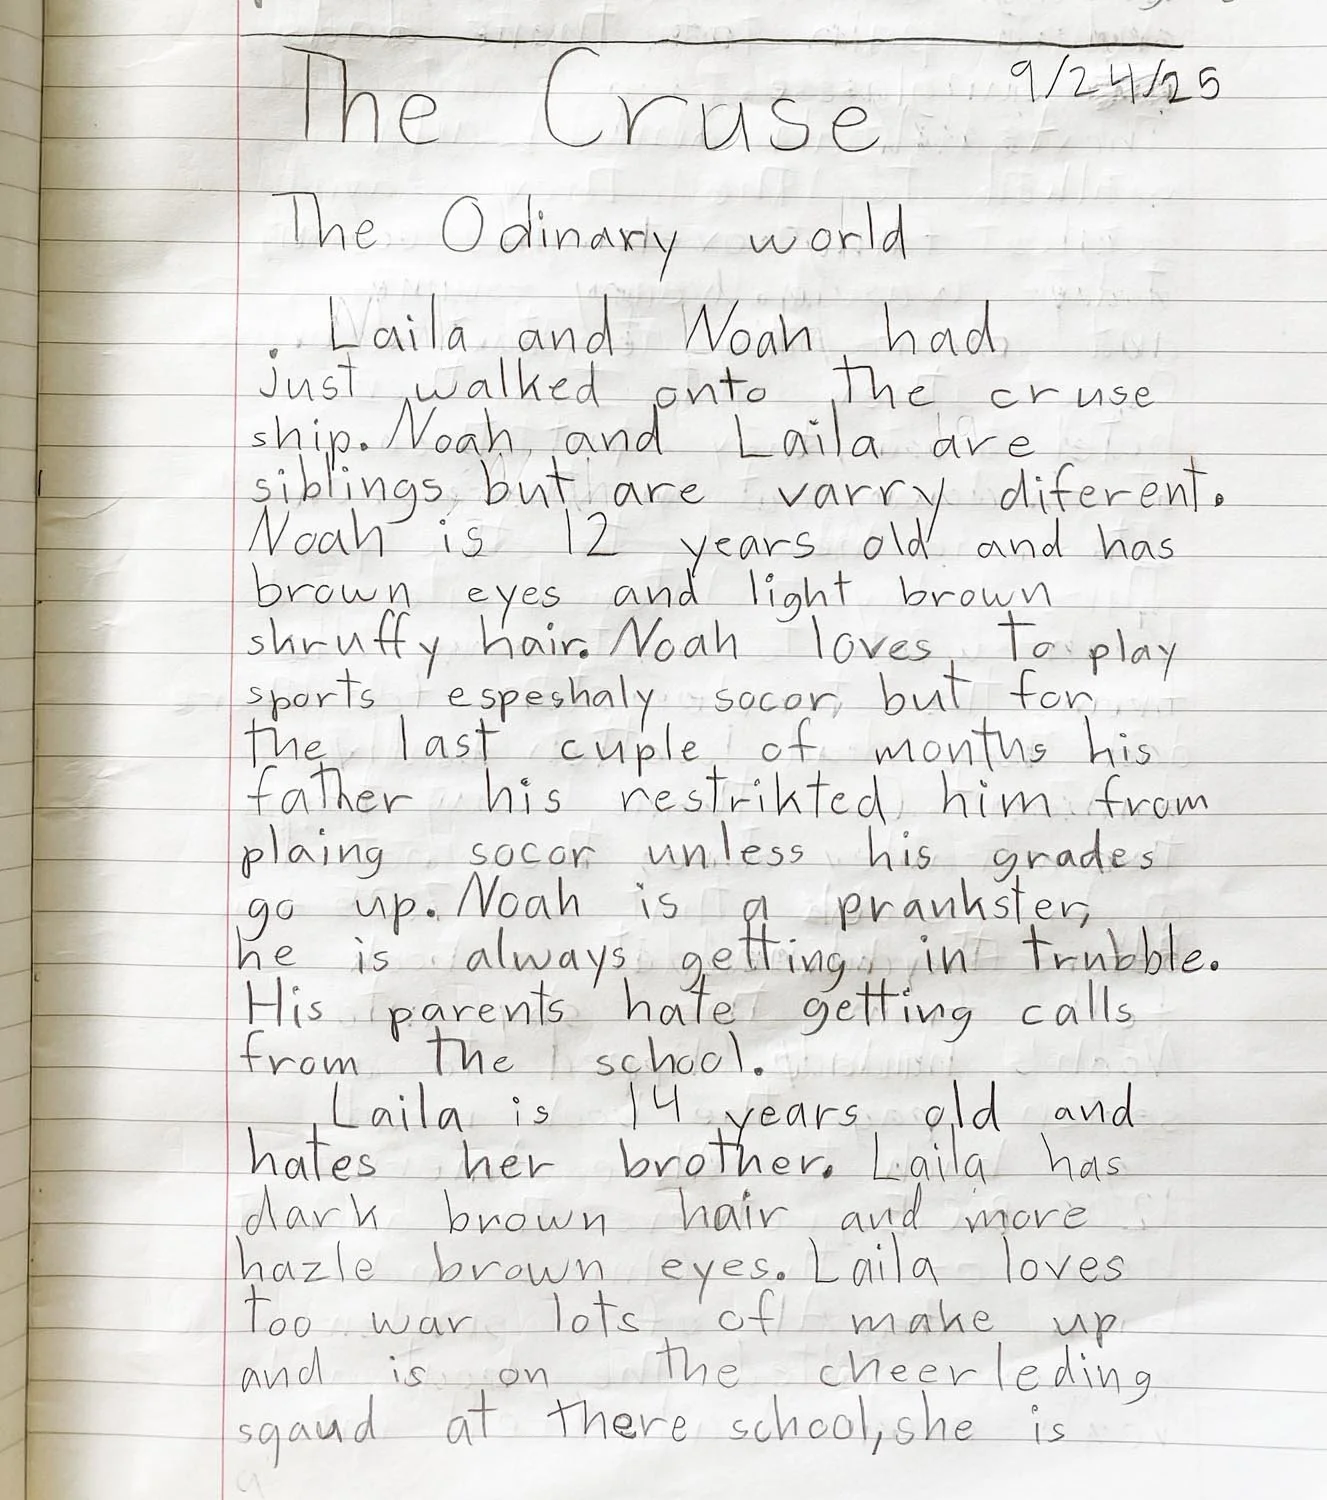 The Cruse
9/24/25
The Odinary world
Laila and Noah had
just walked onto the cruse
ship. Noah and Laila are
siblings but are varry diferent.
Noah is 12 years old and has
brown eyes and light brown
skruffy hair. Noah loves to play
sports espeshaly socor, but for
the last cuple of months his
father his restrikted him from
plaing socor unless his grades
go up. Noah is a prankster,
he is always getting in trubble.
His parents hate getting calls
from the school.
Laila is 14 years old and
hates her brother. Laila has
dark brown hair and more
hazle brown eyes. Laila loves
too war lots of make up
and is on the cheerleding
sqaud at there school, she is